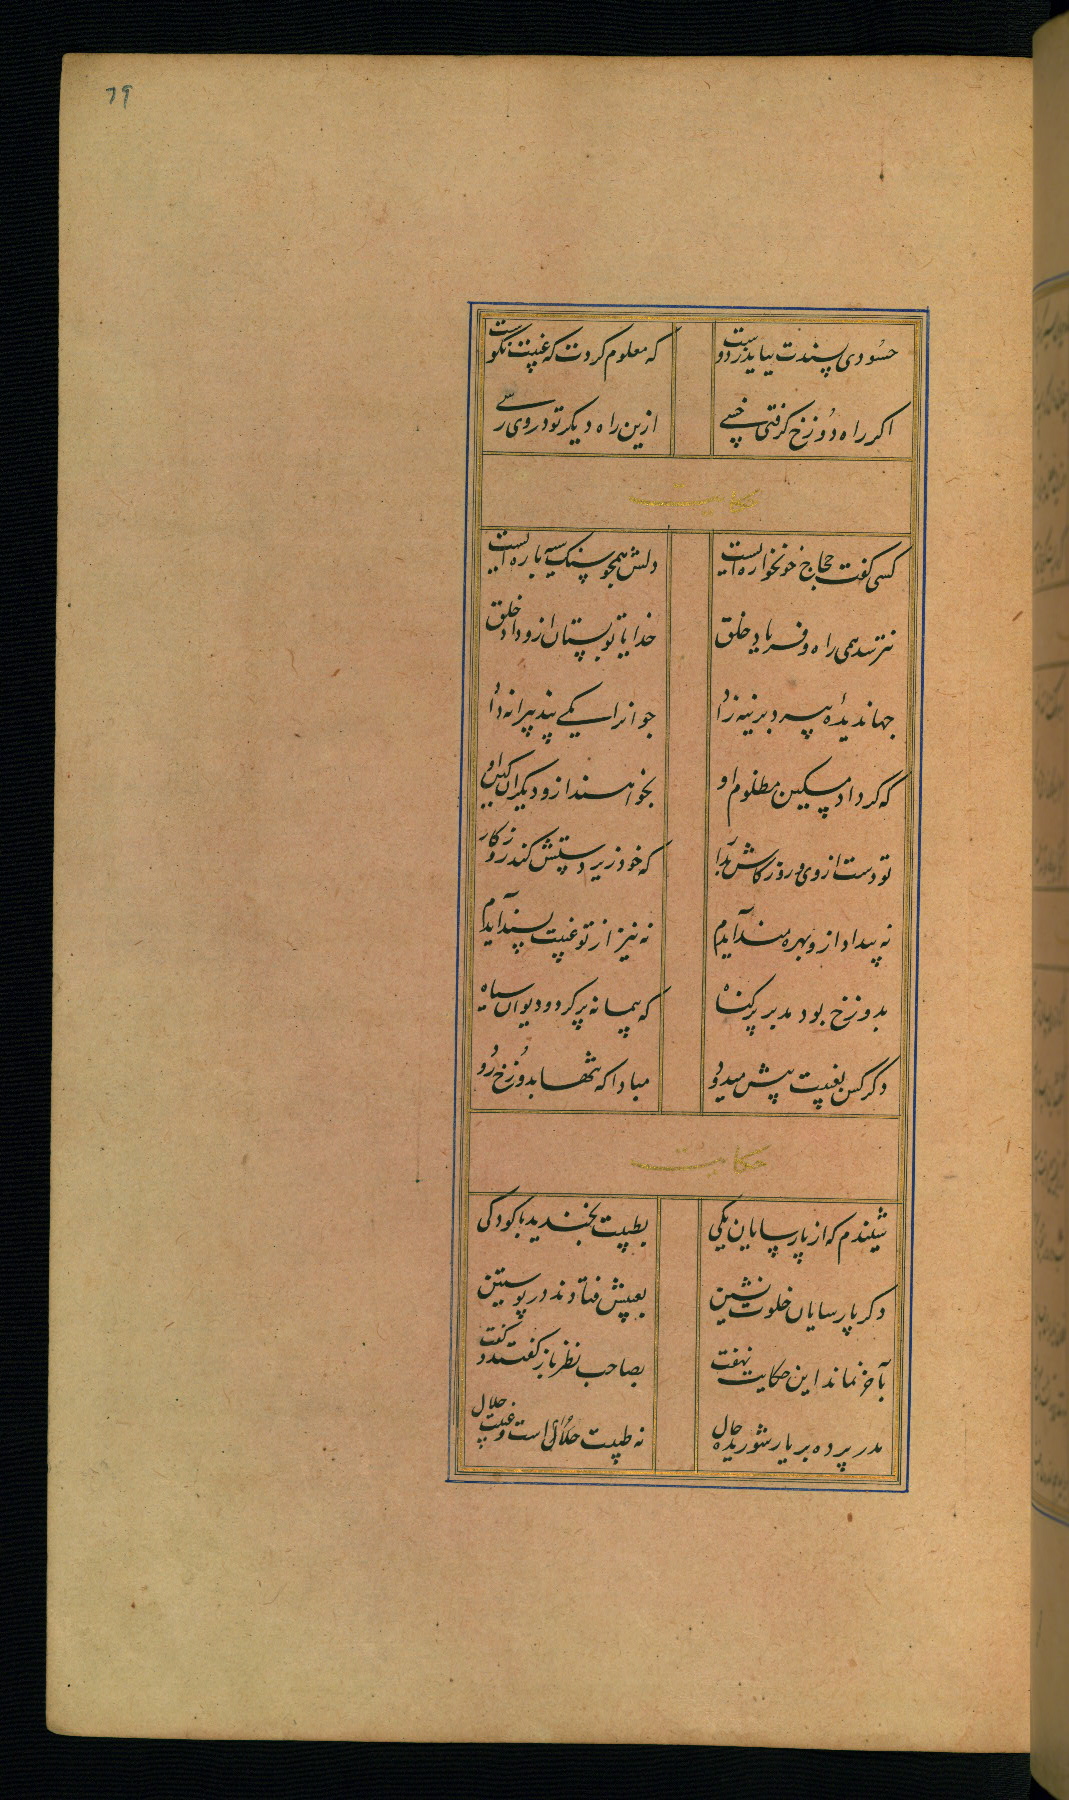 79
حسودی پسندت نیاید ز دوست که معلوم کردت که غیبت نکوست
اکر راه دوزخ کرفتی خسی ازین راه دیکر تو در وی رسی
حکایت
کسی کفت حجاج خونخواره ایست دلش همچو سنک سیه پاره ایست
نترسد همی راه و فریاد خلق خدایا تو بستان ازو داد خلق
جهاندیدهٔ پیر دیرینه زاد جوانرا یکی پند پیرانه داد
کزو داد مسکین مظلوم او بخواهند از و دیکران کین او
تو دست از وی و روزکارش بدار که خود زیر دستش کند روزکار
نه بیداد ازو بهره مند آیدم نه نیز از تو غیبت پسند آیدم
بدوزخ بود مدبر پر کناه که پیمانه پر کرد و دیوان سیاه
دکر کس بغیبت پیش میدود مبادا که تنها بدوزخ رود
حکایت
شنیدم که از پارسایان یکی بطیبت بخندید با کودکی
دکر پارسایان خلوت نشین بعیبش فتادند در پوستین
بآخر نماند این حکایت نهفت بصاحب نظر باز کفتند و کفت
مدر پرده بر یار شوریده حال نه طیبت حرام است و غیبت حلال